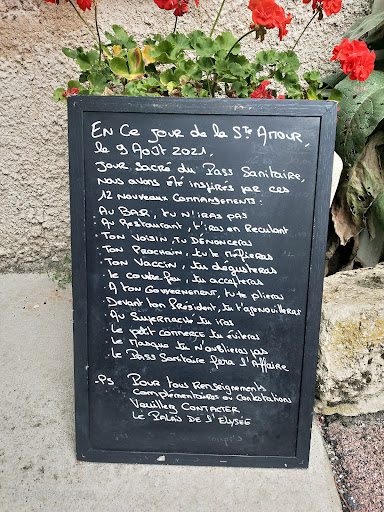 En ce jour de la Ste Amour,
le 9 Août 2021,
jour sacré du Pass Sanitaire,
nous avons été inspirés par ces
12 nouveaux commandements :
Au Bar, tu n'iras pas
Au Restaurant, t'iras en Reculant
Ton Voisin, tu Dénonceras
Ton Prochain, tu te Méfieras
Ton Vaccin, tu dégusteras
Le couvre-feu, tu accepteras
A ton Gouvernement, tu te plieras
Devant ton Président, tu t'agenouilleras
Au Supermarché tu iras
Le petit commerce tu éviteras
Le Masque tu n'oublieras pas
Le Pass Sanitaire fera l'Affaire
-PS Pour tous Renseignements
complémentaires ou Contestations
Veuillez CONTACTER
Le Palais de l'Elysée